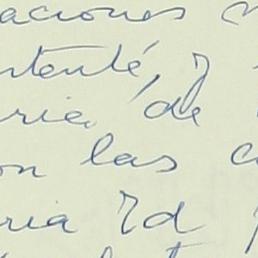 aciones
ntenté, y
ria, de
on las
ria Vd